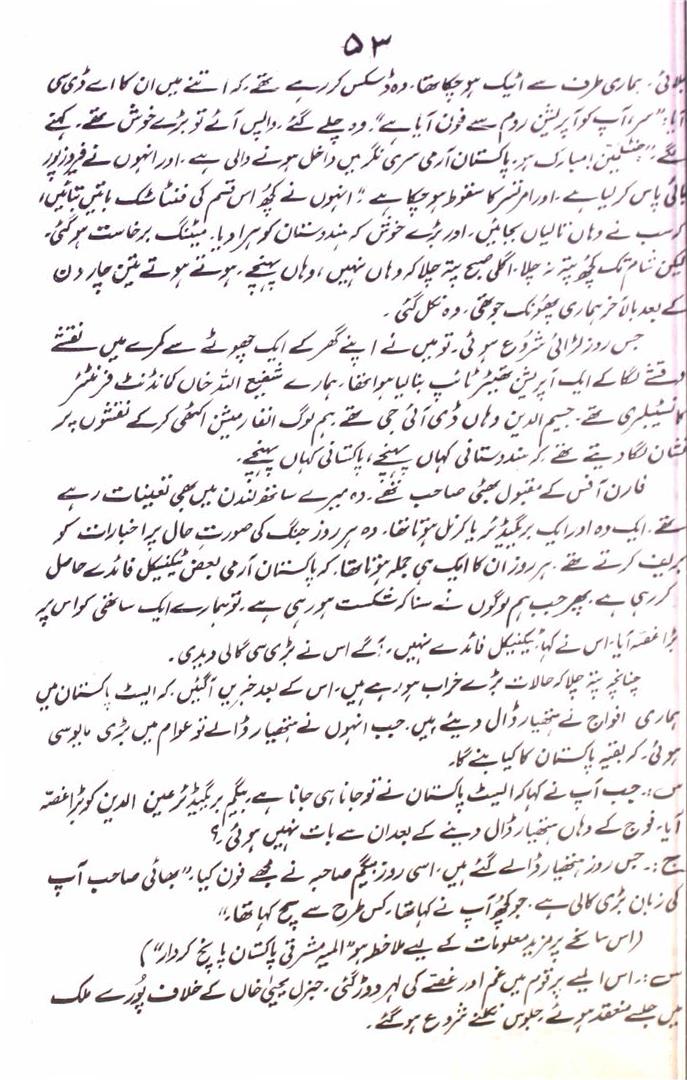 ۵۳
بلائی۔ ہماری طرف سے اٹیک ہو چکا تھا۔ وہ ڈسکس کر رہے تھے۔ کہ اتنے میں ان کا اے ڈی سی
آیا: "سر، آپ کو آپریشن روم سے فون آیا ہے"۔ وہ چلے گئے۔ واپس آئے تو بڑے خوش تھے۔ کہنے
لگے: "جنٹلمین! مبارک ہو، پاکستان آرمی سری نگر میں داخل ہونے والی ہے۔ اور انہوں نے فیروز پور
بائی پاس کر لیا ہے۔ اور امرتسر کا سقوط ہو چکا ہے" انہوں نے کچھ اس قسم کی فنٹاسٹک باتیں بتائیں،
کہ سب نے وہاں تالیاں بجائیں۔ اور بڑے خوش کہ ہندوستان کو ہرا دیا۔ میٹنگ برخاست ہو گئی۔
لیکن شام تک کچھ پتہ نہ چلا۔ اگلی صبح پتہ چلا کہ وہاں نہیں، وہاں پہنچے۔ ہوتے ہوتے تین چار دن
کے بعد بالآخر ہماری پھونک جو تھی۔ وہ نکل گئی۔
جس روز لڑائی شروع ہوئی۔ تو میں نے اپنے گھر کے ایک چھوٹے سے کمرے میں نقشے
وقشے لگا کے ایک آپریشن تھیٹر ٹائپ بنا لیا ہوا تھا۔ ہمارے شفیع اللہ خاں کمانڈنٹ فرنٹئر
کانسٹیبلری تھے۔ جسیم الدین وہاں ڈی آئی جی تھے۔ ہم لوگ انفارمیشن اکٹھی کر کے نقشوں پر
نشان لگا دیتے تھے۔ کہ ہندوستانی کہاں پہنچے، پاکستانی کہاں پہنچے۔
فارن آفس کے مقبول بھٹی صاحب تھے۔ وہ میرے ساتھ لندن میں بھی تعینات رہے
تھے۔ ایک وہ اور ایک بریگیڈئر یا کرنل ہوتا تھا۔ وہ ہر روز جنگ کی صورت حال پر اخبارات کو
بریف کرتے تھے۔ ہر روز ان کا ایک ہی جملہ ہوتا تھا۔ کہ پاکستان آرمی بعض ٹیکنیکل فائدے حاصل
کر رہی ہے۔ پھر جب ہم لوگوں نے سنا کہ شکست ہو رہی ہے۔ تو ہمارے ایک ساتھی کو اس پر
بڑا غصہ آیا۔ اس نے کہا، ٹیکنیکل فائدے نہیں۔ آگے اس نے بڑی سی گالی دیدی۔
چنانچہ پتہ چلا کہ حالات بڑے خراب ہو رہے ہیں۔ اس کے بعد خبریں آ گئیں۔ کہ ایسٹ پاکستان میں
ہماری افواج نے ہتھیار ڈال دیئے ہیں۔ جب انہوں نے ہتھیار ڈالے تو عوام میں بڑی مایوسی
ہوئی۔ کہ بقیہ پاکستان کا کیا بنے گا۔
س:۔ جب آپ نے کہا کہ ایسٹ پاکستان نے تو جانا ہی جانا ہے، بیگم بریگیڈئر عین الدین کو بڑا غصہ
آیا۔ فوج کے وہاں ہتھیار ڈال دینے کے بعد ان سے بات نہیں ہوئی۔؟
ج:۔ جس روز ہتھیار ڈالے گئے ہیں۔ اسی روز بیگم صاحبہ نے مجھے فون کیا۔ "بھائی صاحب آپ
کی زبان بڑی کالی ہے۔ جو کچھ آپ نے کہا تھا۔ کس طرح سے سچ کہا تھا۔"
(اس سانحے پر مزید معلومات کے لیے ملاحظہ ہو "المیہ مشرقی پاکستان پانچ کردار")
س:۔ اس المیے پر قوم میں غم اور غصے کی لہر دوڑ گئی۔ جنرل یحییٰ خاں کے خلاف پُورے ملک
میں جلسے منعقد ہوئے۔ جلوس نکلنے شروع ہو گئے۔